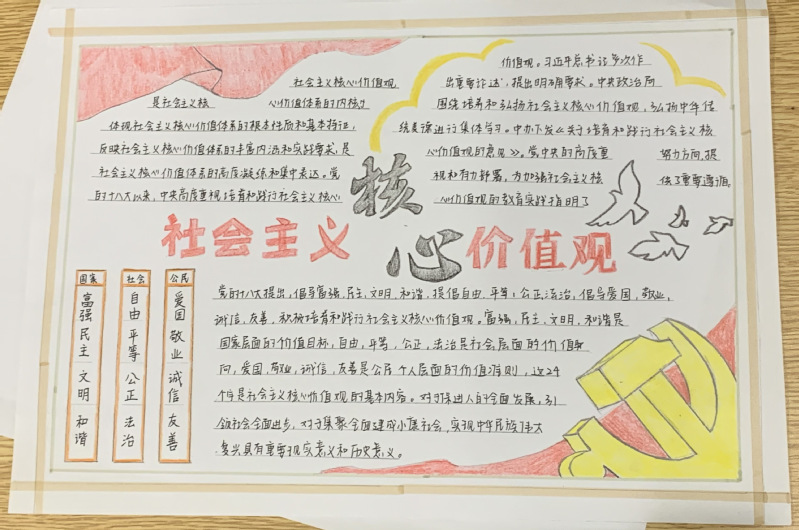 社会主义核心价值观
是社会主义核 心价值体系的内核,
体现社会主义核心价值体系的根本性质和基本特征,
反映社会主义核心价值体系的丰富内涵和实践要求,是
社会主义核心价值体系的高度凝练和集中表达。党
的十八大以来,中央高度重视培育和践行社会主义核心
价值观。习近平总书记多次作
出重要论述,提出明确要求。中央政治局
围绕培育和弘扬社会主义核心价值观,弘扬中华传
统美德进行集体学习。中办下发《关于培育和践行社会主义核
心价值观的意见》。党中央的高度重
视和有力部署,为加强社会主义核
心价值观的教育实践指明了
努力方向,提
供了重要遵循。
社会主义核心价值观
国家
富强 民主 文明 和谐
社会
自由 平等 公正 法治
公民
爱国 敬业 诚信 友善
党的十八大提出,倡导富强,民主,文明,和谐,提倡自由,平等,公正法治,倡导爱国,敬业,
诚信,友善,积极培育和践行社会主义核心价值观。富强,民主,文明,和谐是
国家层面的价值目标,自由,平等,公正,法治是社会层面的价值取
向,爱国,敬业,诚信,友善是公民个人层面的价值准则,这24
个字是社会主义核心价值观的基本内容。对于促进人的全面发展,引
领社会全面进步,对于集聚全面建成小康社会,实现中华民族伟大
复兴具有重要现实意义和历史意义。